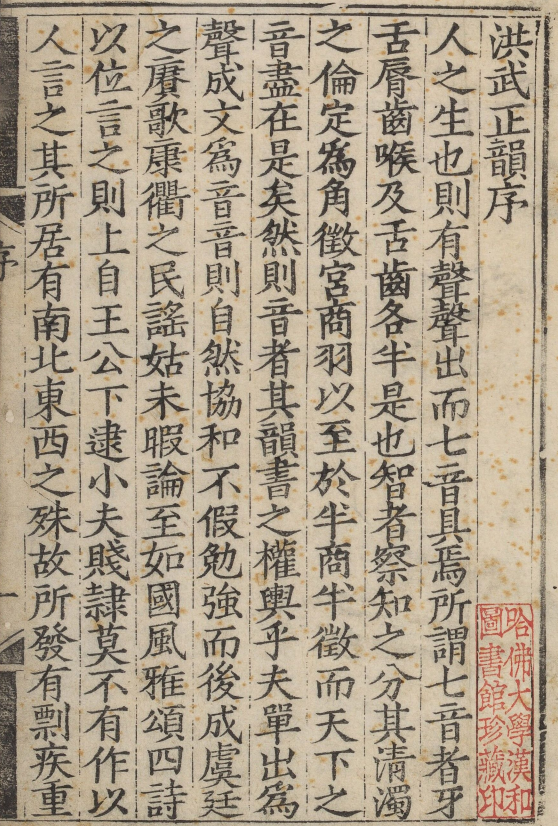 洪武正韻序
人之生也則有聲聲出而七音具焉所謂七音者牙
舌脣齒喉及舌齒各半是也智者察知之分其清濁
之倫定為角徵宮商羽以至於半商半徵而天下之
音盡在是矣然則音者其韻書之權輿乎夫單出為
聲成文為音音則自然協和不假勉強而後成虞廷
之賡歌康衢之民謠姑未暇論至如國風雅頌四詩
以位言之則上自王公下逮小夫賤隸莫不有作以
人言之其所居有南北東西之殊故所發有剽疾重
序
一
哈佛大學漢和
圖書館珍藏印